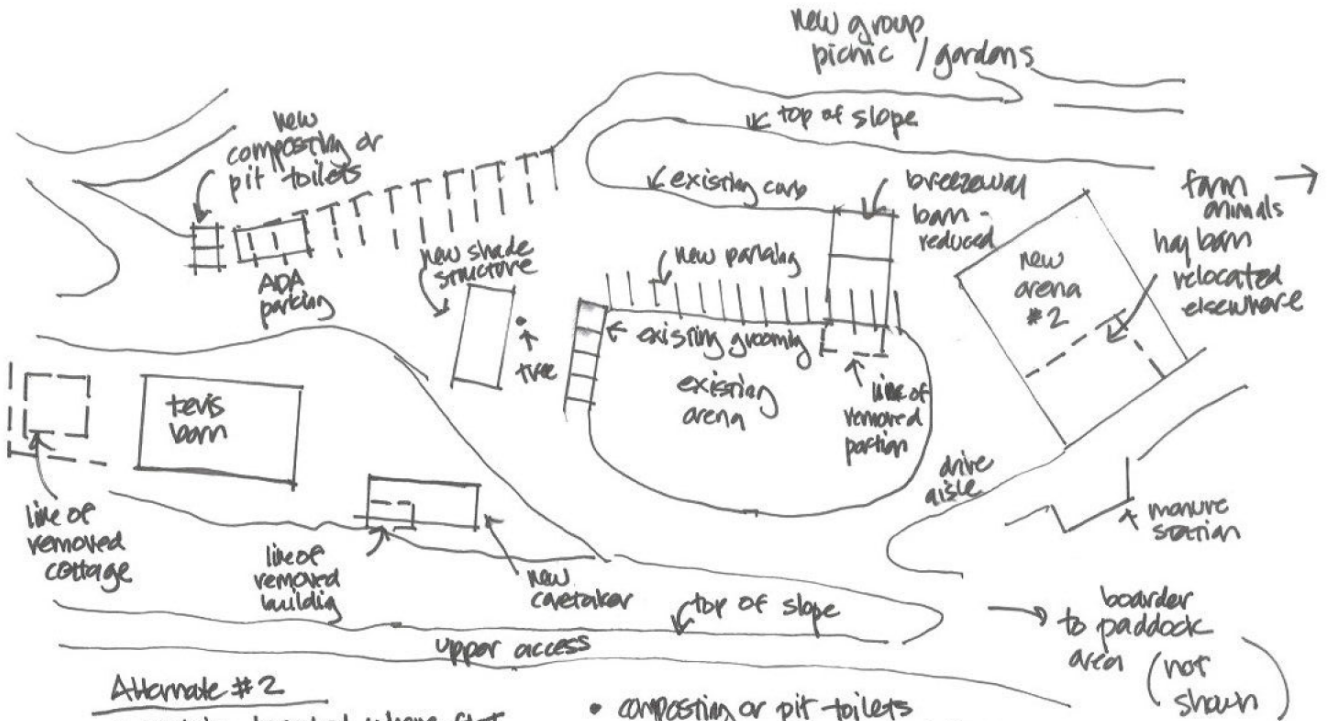 new group
picnic / gardens
top of slope
new
composting or
pit toilets
existing curb
breezeway
barn -
reduced
farm
animals
hay barn
relocated
elsewhere
new parking
new shade
structure
ADA
parking
tree
new
arena
#2
existing grooming
existing
arena
line of
removed
portion
tevis
barn
drive
aisle
manure
station
line of
removed
cottage
line of
removed
building
new
caretaker
top of slope
upper access
boarder
to paddock
area (not
shown)
Alternate #2
• composting or pit toilets